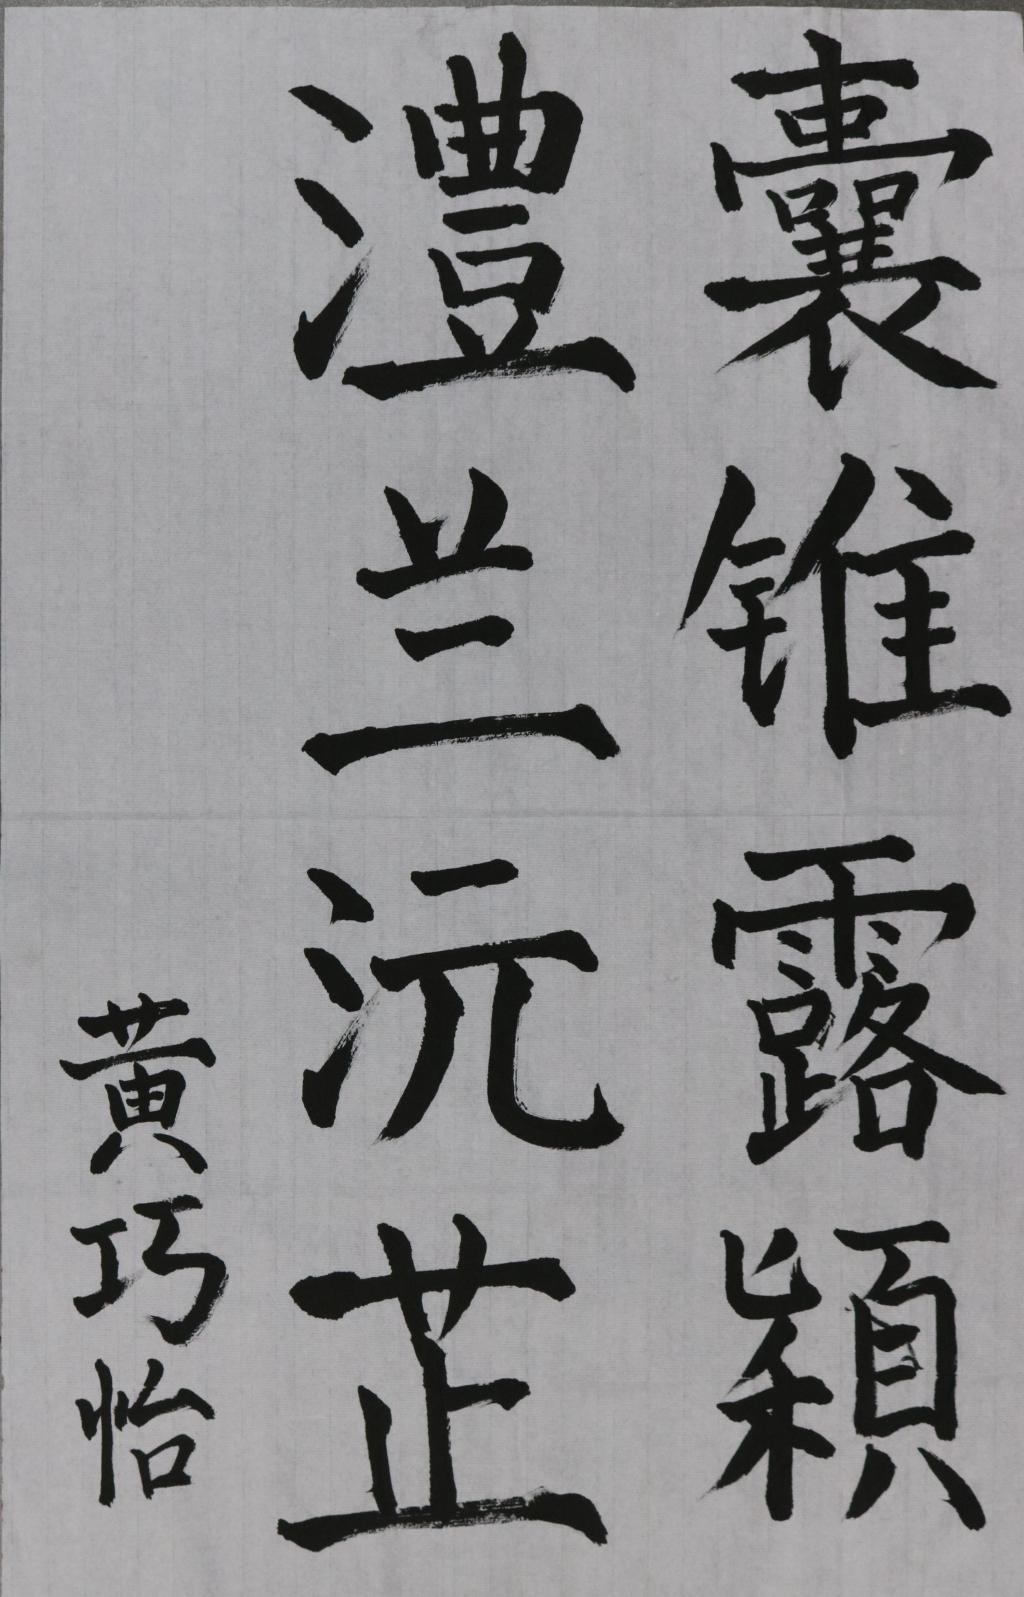 囊锥露穎
澧兰沅芷
黄巧怡